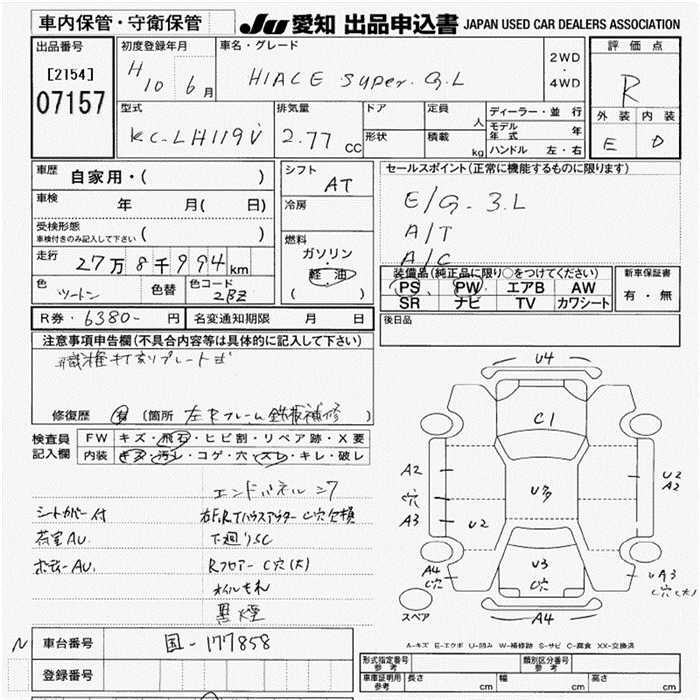 車内保管・守衛保管
JU 愛知 出品申込書 JAPAN USED CAR DEALERS ASSOCIATION
出品番号
[2154]
07157
初度登録年月
H 10 6月
車名・グレード
HIACE Super. G.L
2WD
・
4WD
評価点
R
外装 内装
E D
型式
KC-LH119V
排気量
2.77 CC
ドア
形状
定員 人
積載 kg
ディーラー・並行
モデル年式 年
ハンドル 左・右
車歴 自家用・( )
車検 年 月( 日)
受検形態
車検付きのみ記入して下さい ( )
走行 27万8千994km
色 ツートン 色替 色コード 2BZ
シフト AT
冷房
燃料
ガソリン
・
軽・油
( )
セールスポイント(正常に機能するものに限ります)
E/G. 3.L
A/T
A/C
装備品(純正品に限り○をつけてください)
PS PW エアB AW
SR ナビ TV カワシート
新車保証書
有・無
R券・6380- 円 名変通知期限 月 日
後日品
注意事項申告欄(不具合内容等は具体的に記入して下さい)
職権打刻プレート
修復歴 有 (箇所 左Rフレーム鉄板補修
検査員記入欄
FW キズ・飛石・ヒビ割・リペア跡・X要
内装 キズ・汚レ・コゲ・穴・スレ・キレ・破レ
エンドパネル
シートカバー付 右F,R,Tハウスアウター C穴欠損
荷室AU. 下廻りSC
ボディーAU. RフロアーC穴(大)
オイルもれ
黒煙
U4
C1
A2
C穴
A3
U2
U3
U2
A2
U3
C穴
A4
C穴
A4
UA3
C穴(大)
スペア
A-キズ E-エクボ U-凹み W-補修跡 S-サビ C-腐食 XX-交換済
N 車台番号 国-177858
登録番号
形式指定番号 参考
類別区分番号 参考
車庫証明用 参考 長さ cm 幅 cm 高さ cm